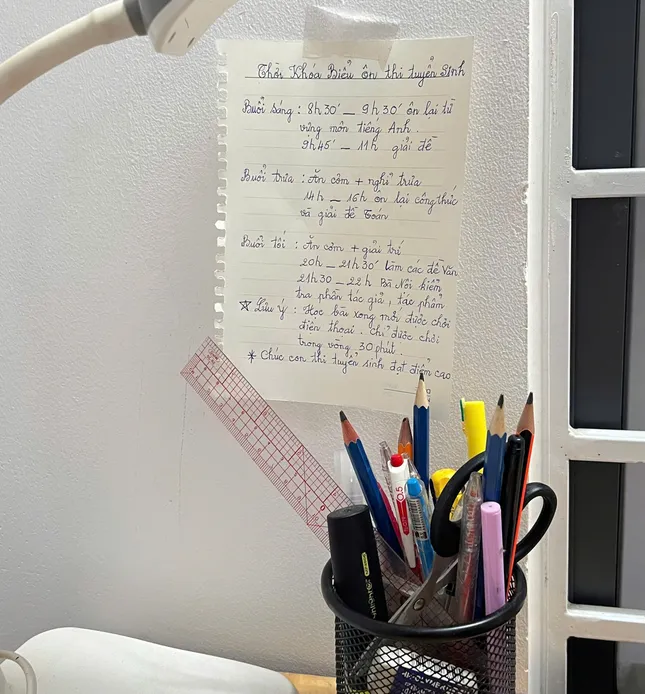 Thời Khóa Biểu ôn thi tuyển sinh
Buổi sáng : 8h30' _ 9h30' ôn lại từ
vựng môn tiếng Anh.
9h45' _ 11h giải đề
Buổi trưa : Ăn cơm + nghỉ trưa
14h _ 16h ôn lại công thức
và giải đề Toán
Buổi tối : Ăn cơm + giải trí
20h _ 21h30' làm các đề Văn
21h30 _ 22h Bà Nội kiểm
tra phần tác giả, tác phẩm
☆ Lưu ý : Học bài xong mới được chơi
điện thoại. Chỉ được chơi
trong vòng 30 phút.
* Chúc con thi tuyển sinh đạt điểm cao
0.5